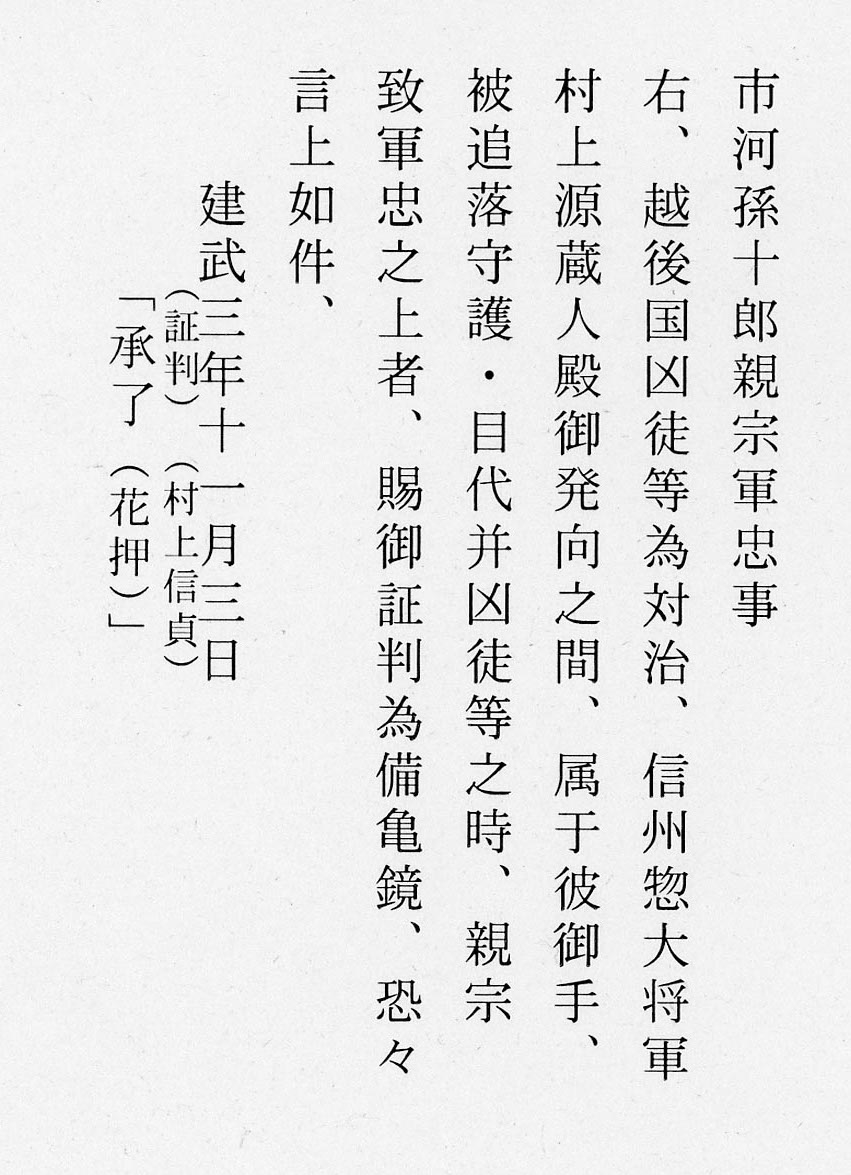 市河孫十郎親宗軍忠事
右、越後国凶徒等為対治、信州惣大将軍
村上源蔵人殿御発向之間、属于彼御手、
被追落守護・目代并凶徒等之時、親宗
致軍忠之上者、賜御証判為備亀鏡、恐々
言上如件、
建武三年十一月三日
（証判）（村上信貞）
「承了（花押）」